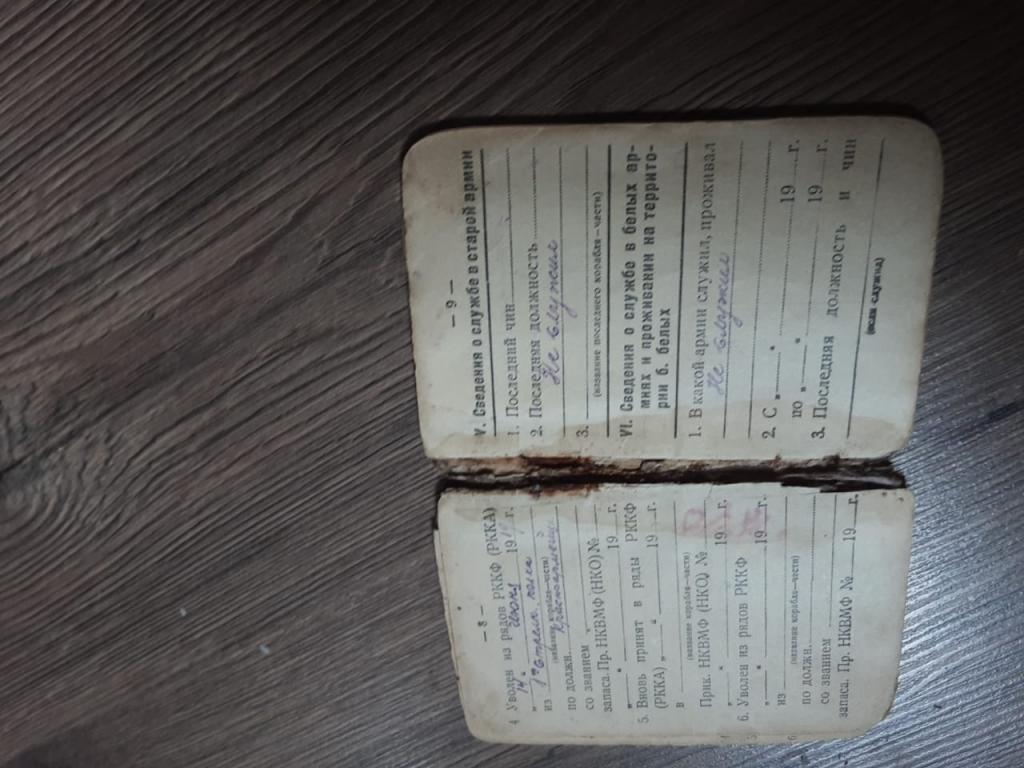 — 8 —
4 Уволен из рядов РККФ (РККА)
„14“ 19 г.
из полка
(название корабля—части)
по должн. Красноармеец
со званием
запаса. Пр. НКВМФ (НКО) №
„ “ 19 г.
5. Вновь принят в ряды РККФ
(РККА) „ “ 19 г.
в
(название корабля—части)
Прик. НКВМФ (НКО) №
„ “ 19 г.
6. Уволен из рядов РККФ
„ “ 19 г.
из
(название корабля—части)
по должн.
со званием
запаса. Пр. НКВМФ №
„ “ 19 г.
— 9 —
V. Сведения о службе в старой армии
1. Последний чин
2. Последняя должность
Не служил
3.
(название последнего корабля—части)
VI. Сведения о службе в белых ар-
миях и проживании на террито-
рии б. белых
1. В какой армии служил, проживал
Не служил
2. С „ “ 19 г.
по „ “ 19 г.
3. Последняя должность и чин
(если служил)